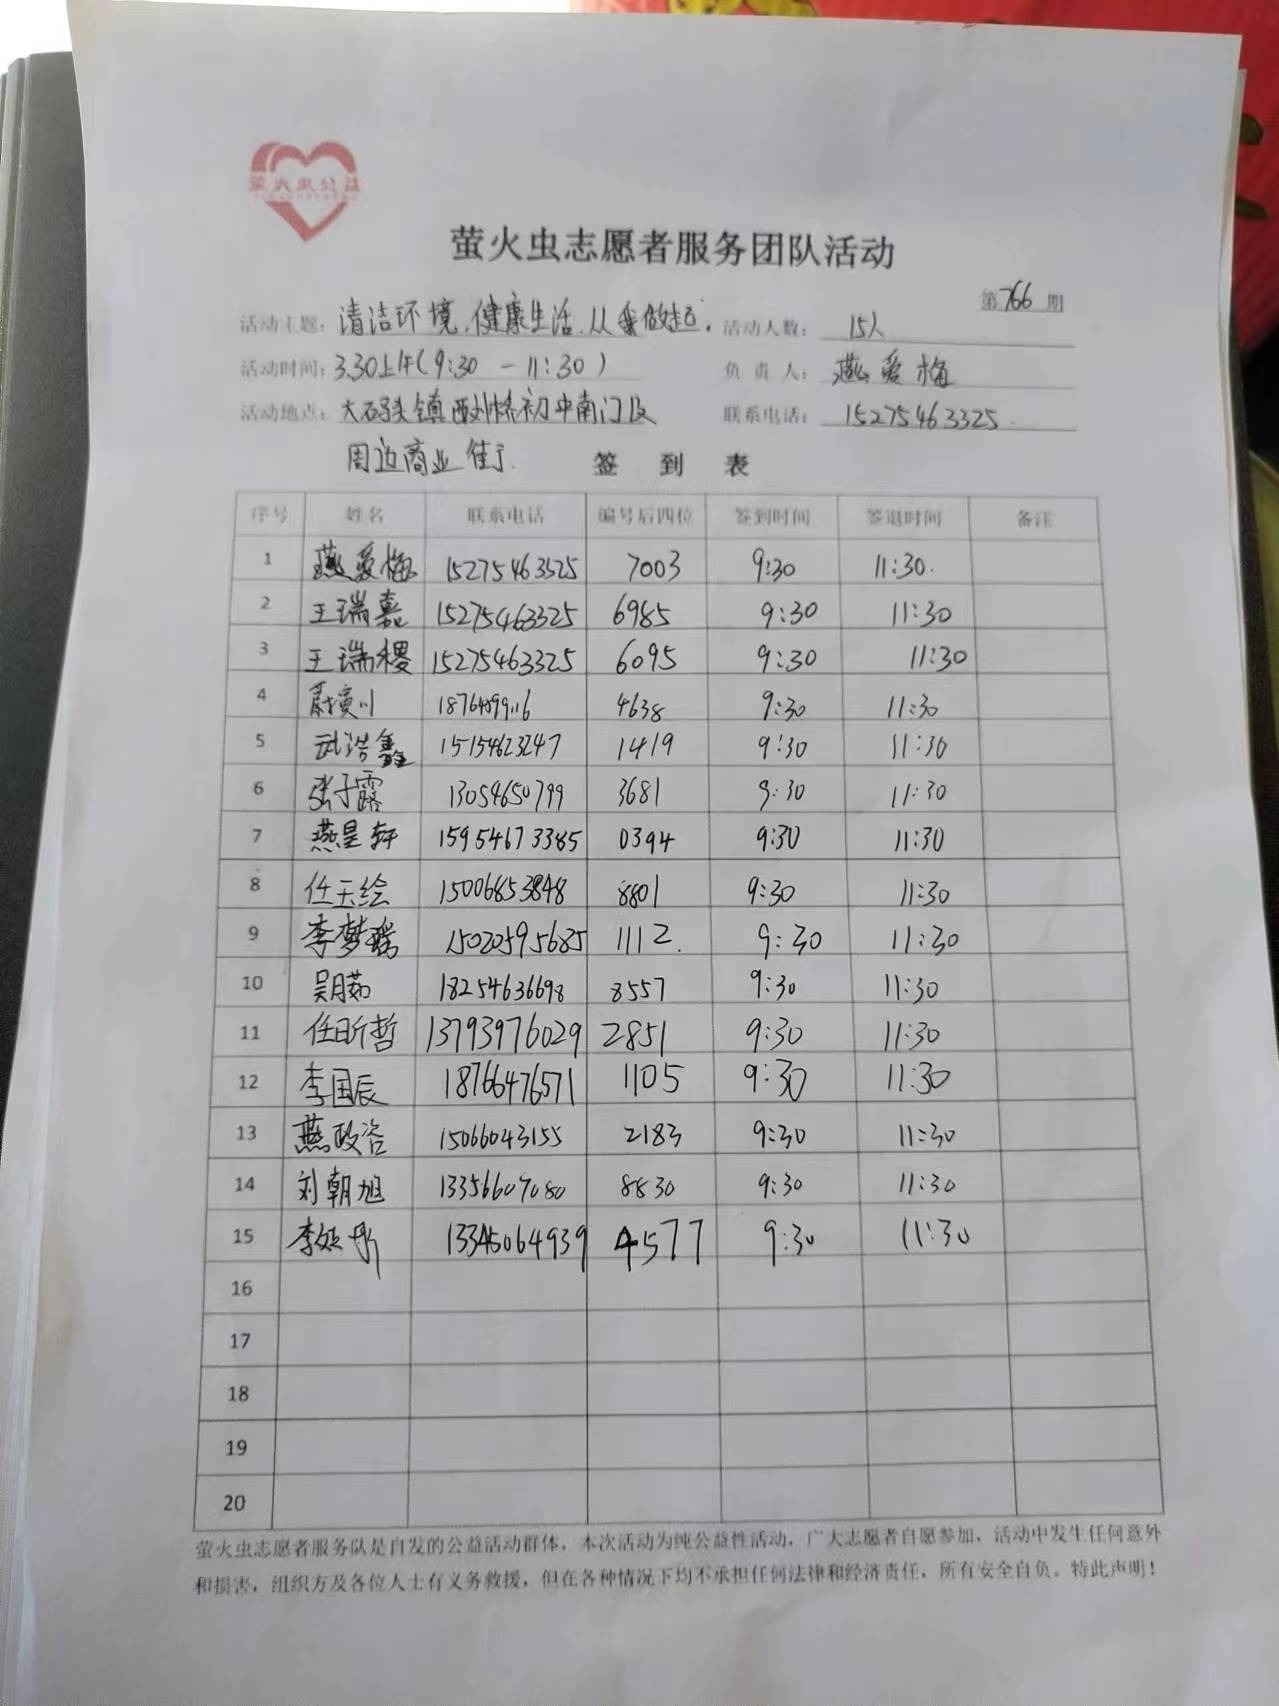 萤火虫公益
萤火虫志愿者服务团队活动
第766期
活动主题：清洁环境，健康生活，从我做起。 活动人数：15人
活动时间：3.30上午(9:30－11:30) 负责人：燕爱梅
活动地点：大码头镇西刘桥初中南门及 联系电话：15275463325
周边商业街
签到表
序号 姓名 联系电话 编号后四位 签到时间 签退时间 备注
1 燕爱梅 15275463325 7003 9:30 11:30.
2 王瑞嘉 15275463325 6985 9:30 11:30
3 王瑞稷 15275463325 6095 9:30 11:30
4 4638 9:30 11:30
5 武浩鑫 15154623247 1419 9:30 11:30
6 张子露 13054650799 3681 9:30 11:30
7 燕昊轩 15954673385 0394 9:30 11:30
8 任玉绘 15006853848 8801 9:30 11:30
9 李梦瑶 15020595685 1112. 9:30 11:30
10 吴月茹 18254636698 8557 9:30 11:30
11 任昕哲 13793976029 2851 9:30 11:30
12 李国辰 18766476571 1105 9:30 11:30
13 燕政咨 15066043155 2183 9:30 11:30
14 刘朝旭 13356607080 8830 9:30 11:30
15 13345064939 4577 9:30 11:30
16
17
18
19
20
萤火虫志愿者服务队是自发的公益活动群体，本次活动为纯公益性活动，广大志愿者自愿参加，活动中发生任何意外
和损害，组织方及各位人士有义务救援，但在各种情况下均不承担任何法律和经济责任，所有安全自负。特此声明！